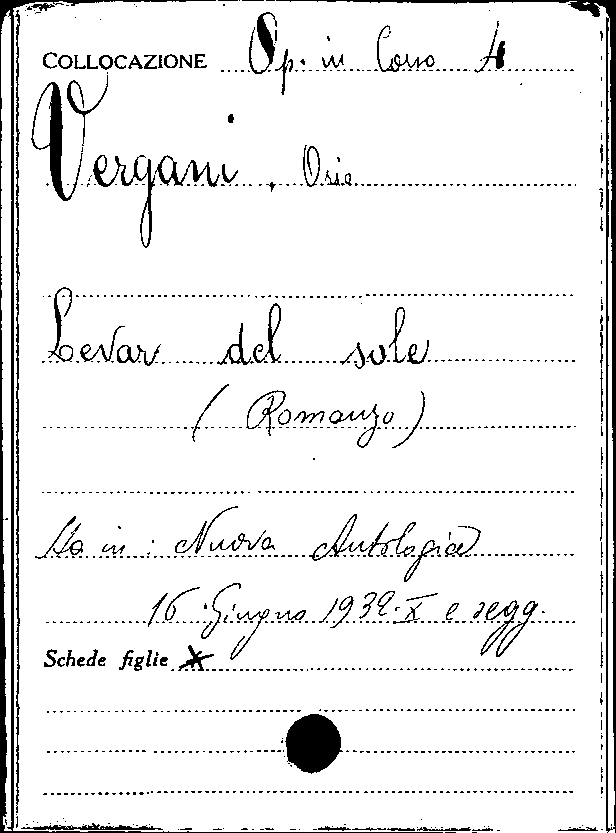 COLLOCAZIONE Op. in Corso 4
Vergani, Orio
Levar del sole
(Romanzo)
Sta in: Nuova Antologia
16 Giugno 1932-X e segg.
Schede figlie x